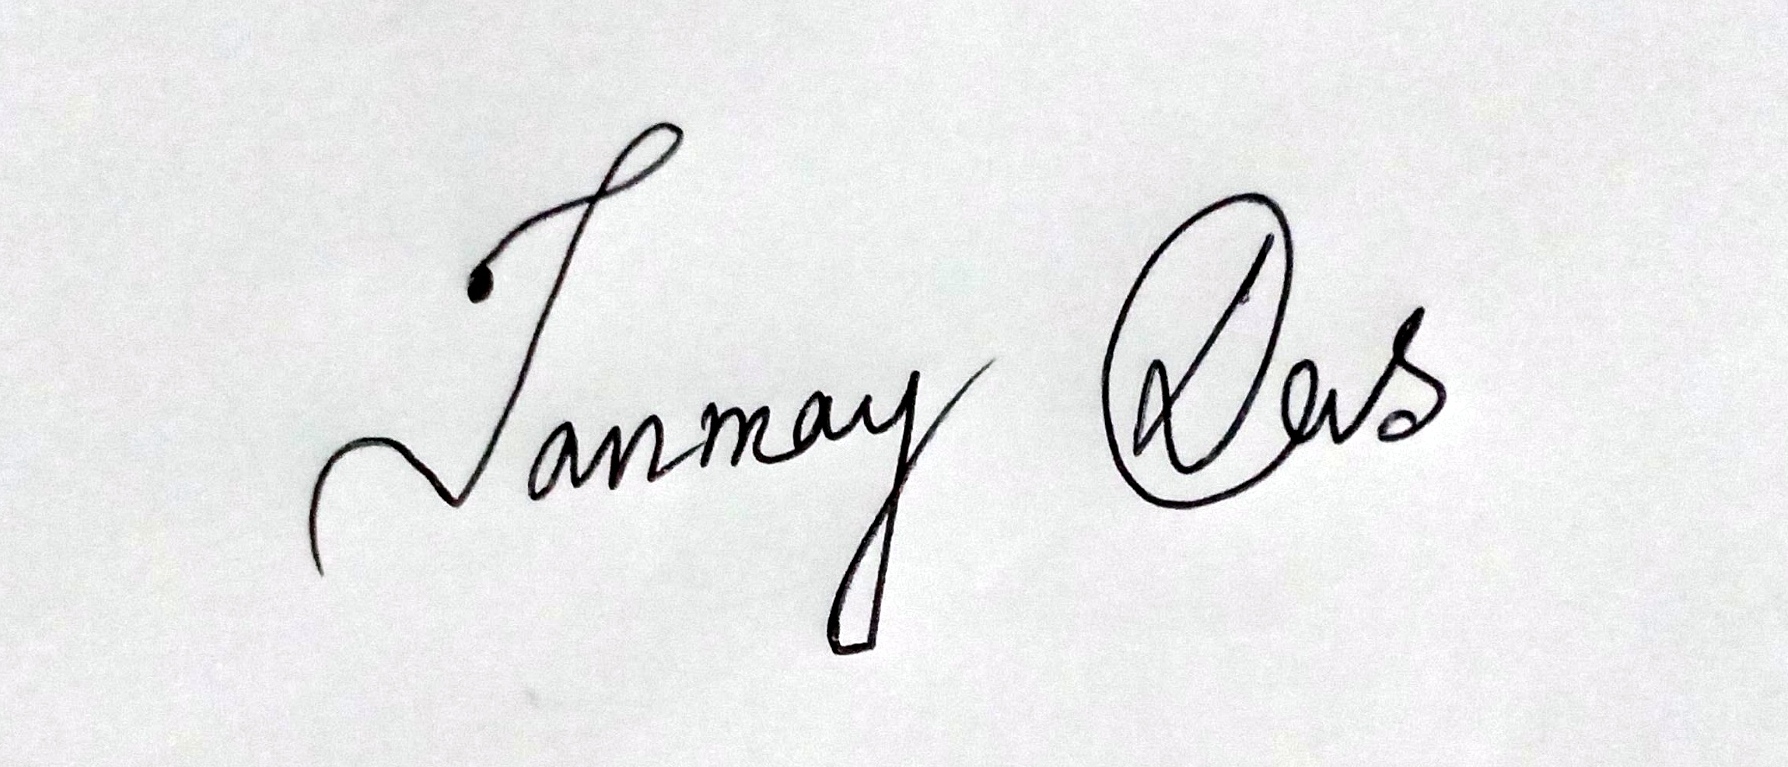 Tanmay Das